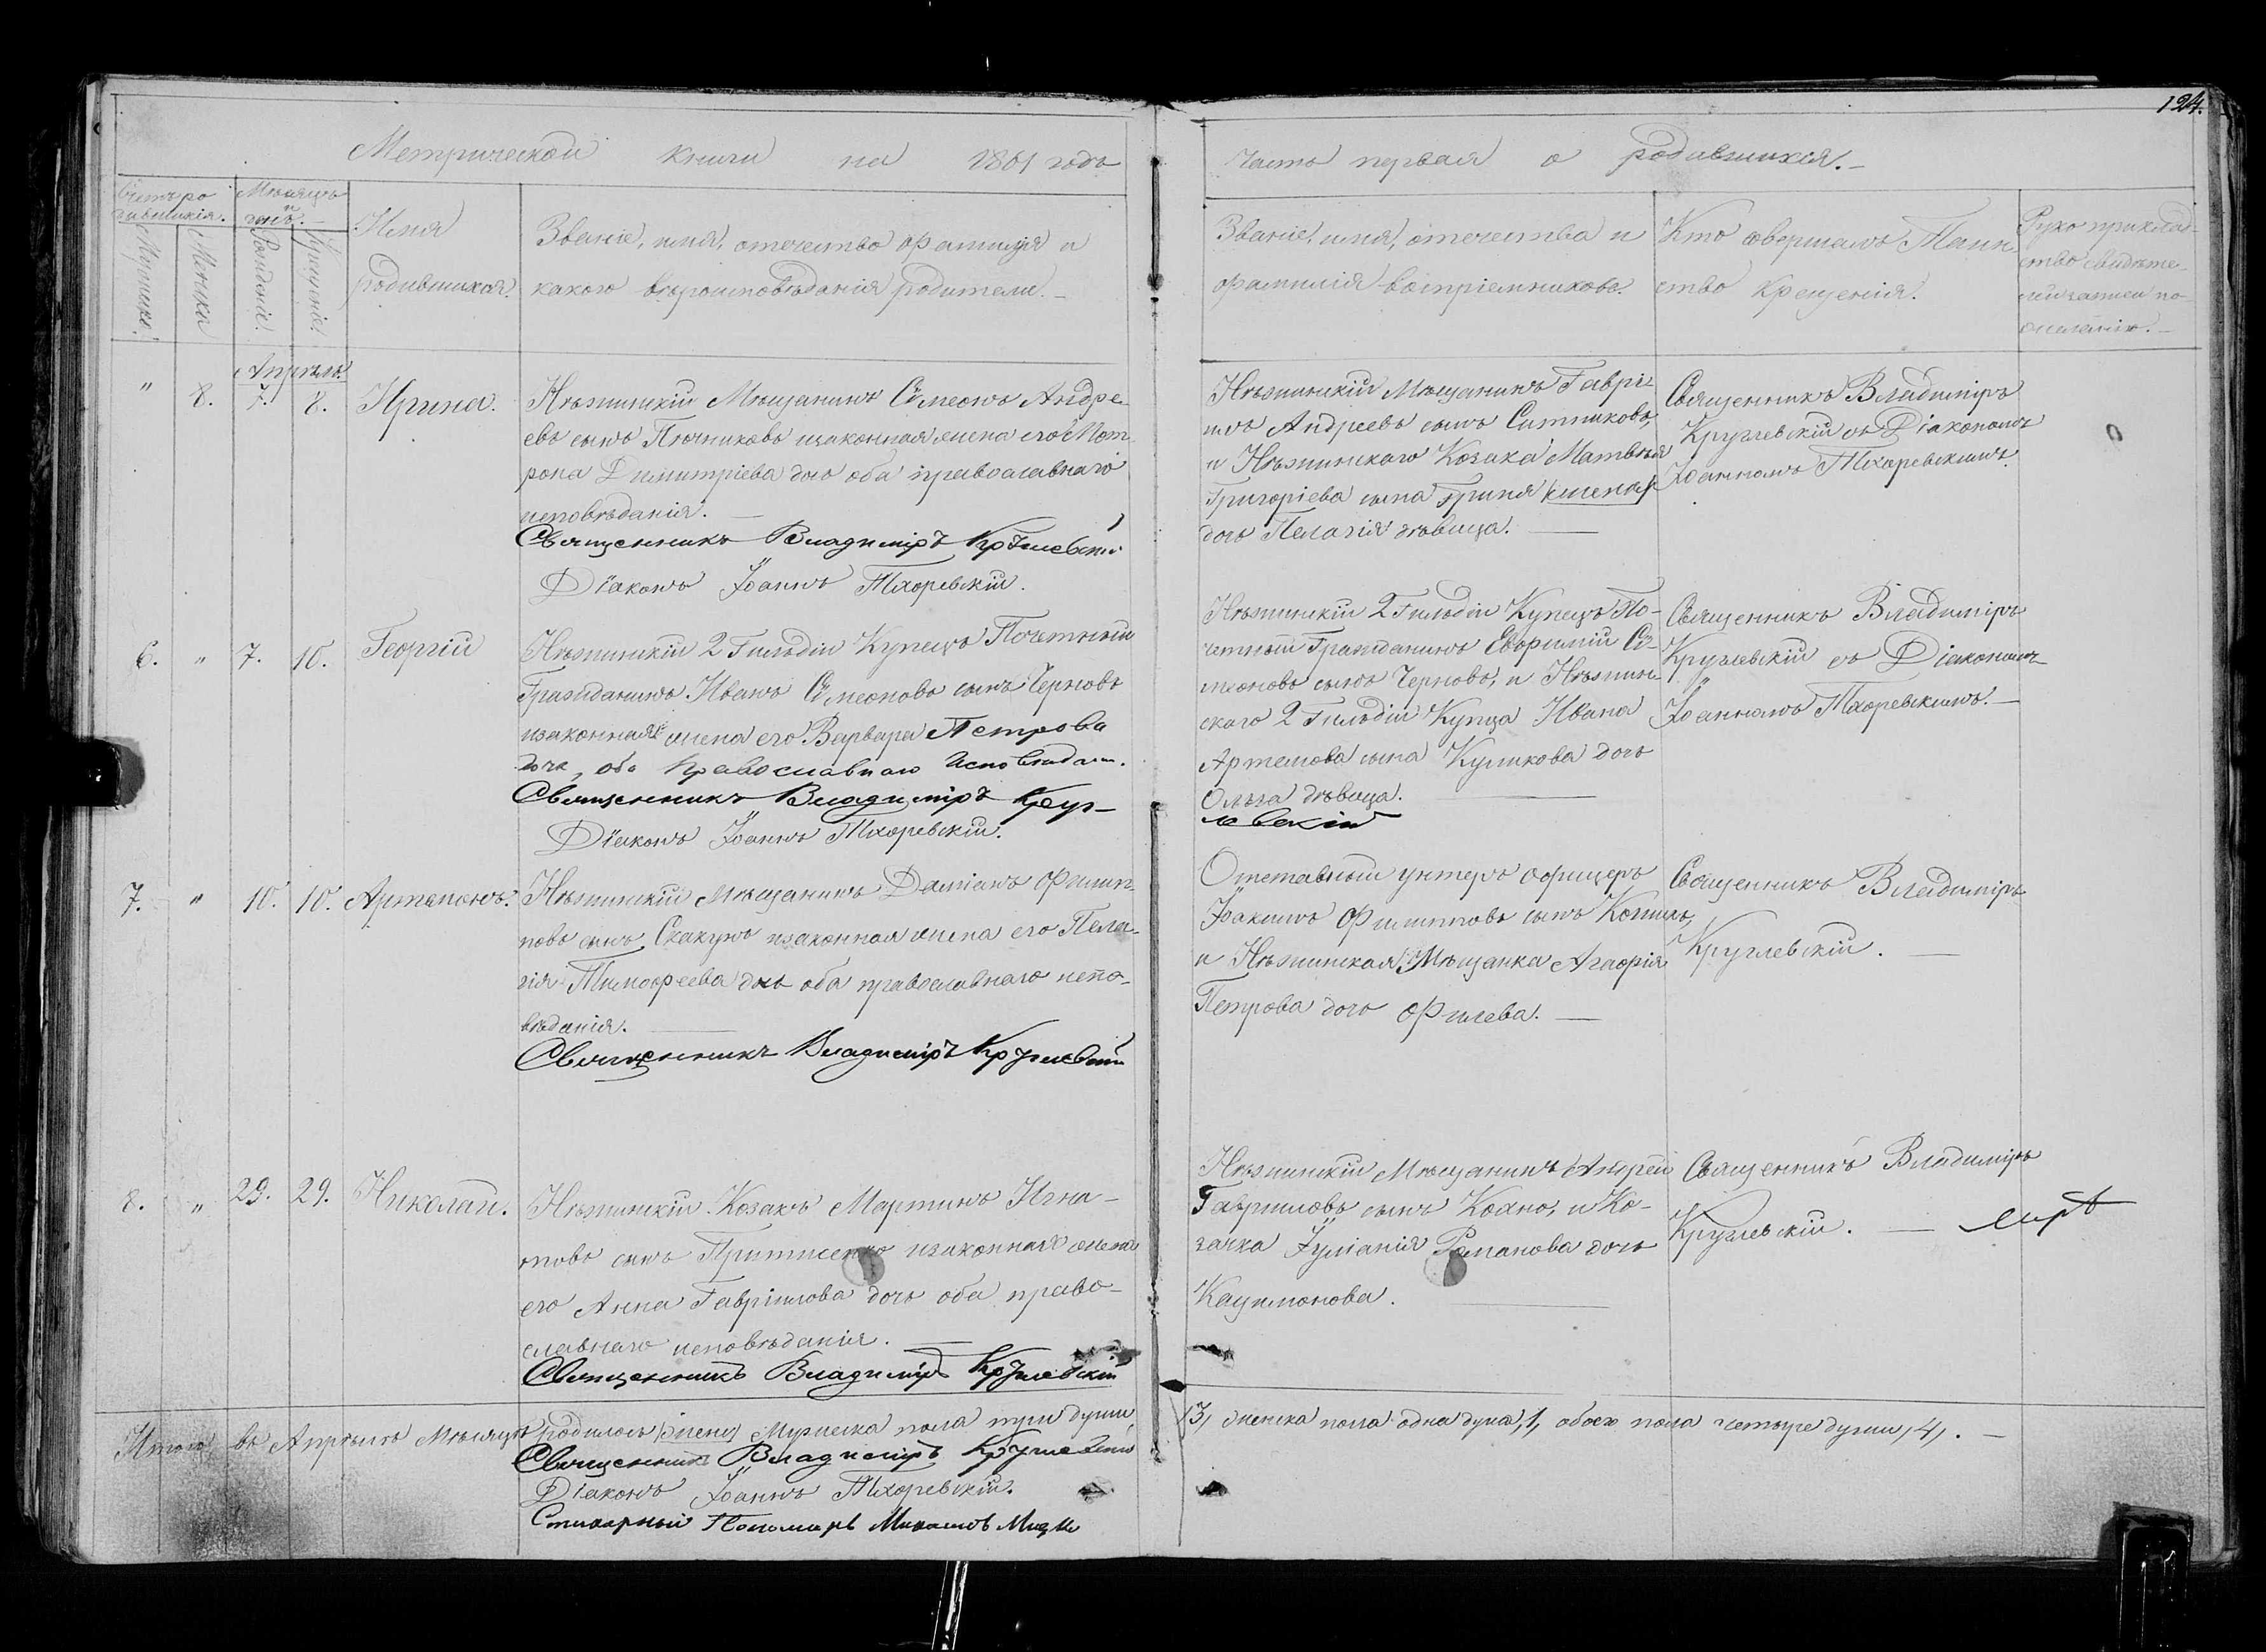 124.
Метрической книги на 1861 годъ
часть первая о родившихся.
Счетъ ро
дившихся.
Мѣсяцъ
и
день.
Мужеска.
Женска
Рожденіе.
Крещеніе.
Имя
родившихся.
Званіе, имя, отечество фамилія и
какого вѣроисповѣданія родители.
Званіе, имя, отечество и
фамилія воспріемниковъ.
Кто совершалъ Таин
ство Крещенія.
Рукоприклад-
ство свидѣте-
лей записи по
желанію.
Апрѣль.
" 8. 7. 8. Ирина.
Нѣжинскій Мѣщанинъ Сѵмеонъ Андре-
евъ сынъ Пючниковъ изаконная жена его Мат-
рона Димитріева дочь оба православнаго
исповѣданія.
Священникъ Владиміръ Круглевскій
Діаконъ Іоаннъ Тхоревскій.
Нѣжинскій Мѣщанинъ Гаврі-
илъ Андреевъ сынъ Ситниковъ,
и Нѣжинскаго Козака Матвѣя
Григоріева сына Гриня
дочь Пелагія дѣвица.
Священникъ Владиміръ
Круглевскій съ Діакономъ
Іоанномъ Тхоревскимъ.
6. " 7. 10. Георгій
Нѣжинскій 2 Гильдіи Купецъ Почетный
Гражданинъ Иванъ Сѵмеоновъ сынъ Черновъ
изаконная жена его Варвара Петрова
дочь, оба Православнаго Исповѣдан.
Священникъ Владиміръ Круг-
Діаконъ Іоаннъ Тхоревскій.
Нѣжинскій 2 Гильдіи Купецъ По-
четный Гражданинъ Евфимій Сѵ-
меоновъ сынъ Черновъ, и Нѣжин-
скаго 2 Гильдіи Купца Ивана
Артемова сына Куликова дочь
Ольга дѣвица.
левскій
Священникъ Владиміръ
Круглевскій съ Діакономъ
Іоанномъ Тхоревскимъ.
7. " 10. 10. Артемонъ.
Нѣжинскій Мѣщанинъ Даміанъ Филип-
повъ сынъ Скакунъ изаконная жена его Пела-
гія Тимофеева дочь оба православнаго испо-
вѣданія.
Священникъ Владиміръ Круглевскій
Отставный унтеръ офицеръ
Іоакимъ Филипповъ сынъ
и Нѣжинская Мѣщанка Агафія
Петрова дочь Филева.
Священникъ Владиміръ
Круглевскій.
8. " 29. 29. Николай.
Нѣжинскій Козакъ Мартинъ Игна-
товъ сынъ Притисенко изаконная жена
его Анна Гавріилова дочь оба право-
славнаго исповѣданія.
Священникъ Владиміръ Круглевскій
Нѣжинскій Мѣщанинъ Андрей
Гавриловъ сынъ Кохно, и Ко-
зачка Іуліанія Романова дочь
Кацимонова.
Священникъ Владиміръ
Круглевскій.
Итого въ Апрѣлѣ Мѣсяцѣ родилось Мужеска пола три души
/3/ женска пола одна душа /1/ обоего пола четыре души /4/.
Священникъ Владиміръ Круглевскій
Діаконъ Іоаннъ Тхоревскій.
Стихарный Пономарь